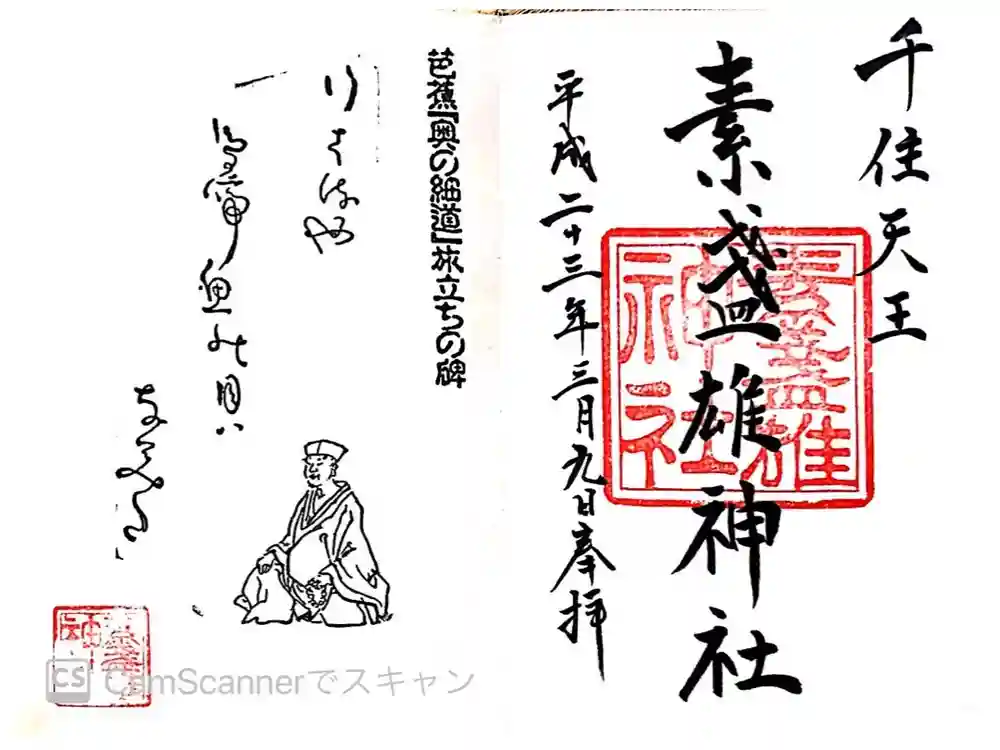 千住天王
素盞雄神社
平成二十三年三月九日奉拝
素盞雄
神社
芭蕉『奥の細道』旅立ちの碑
行はるや
鳥啼魚の目ハ
なみた
CS CamScannerでスキャン